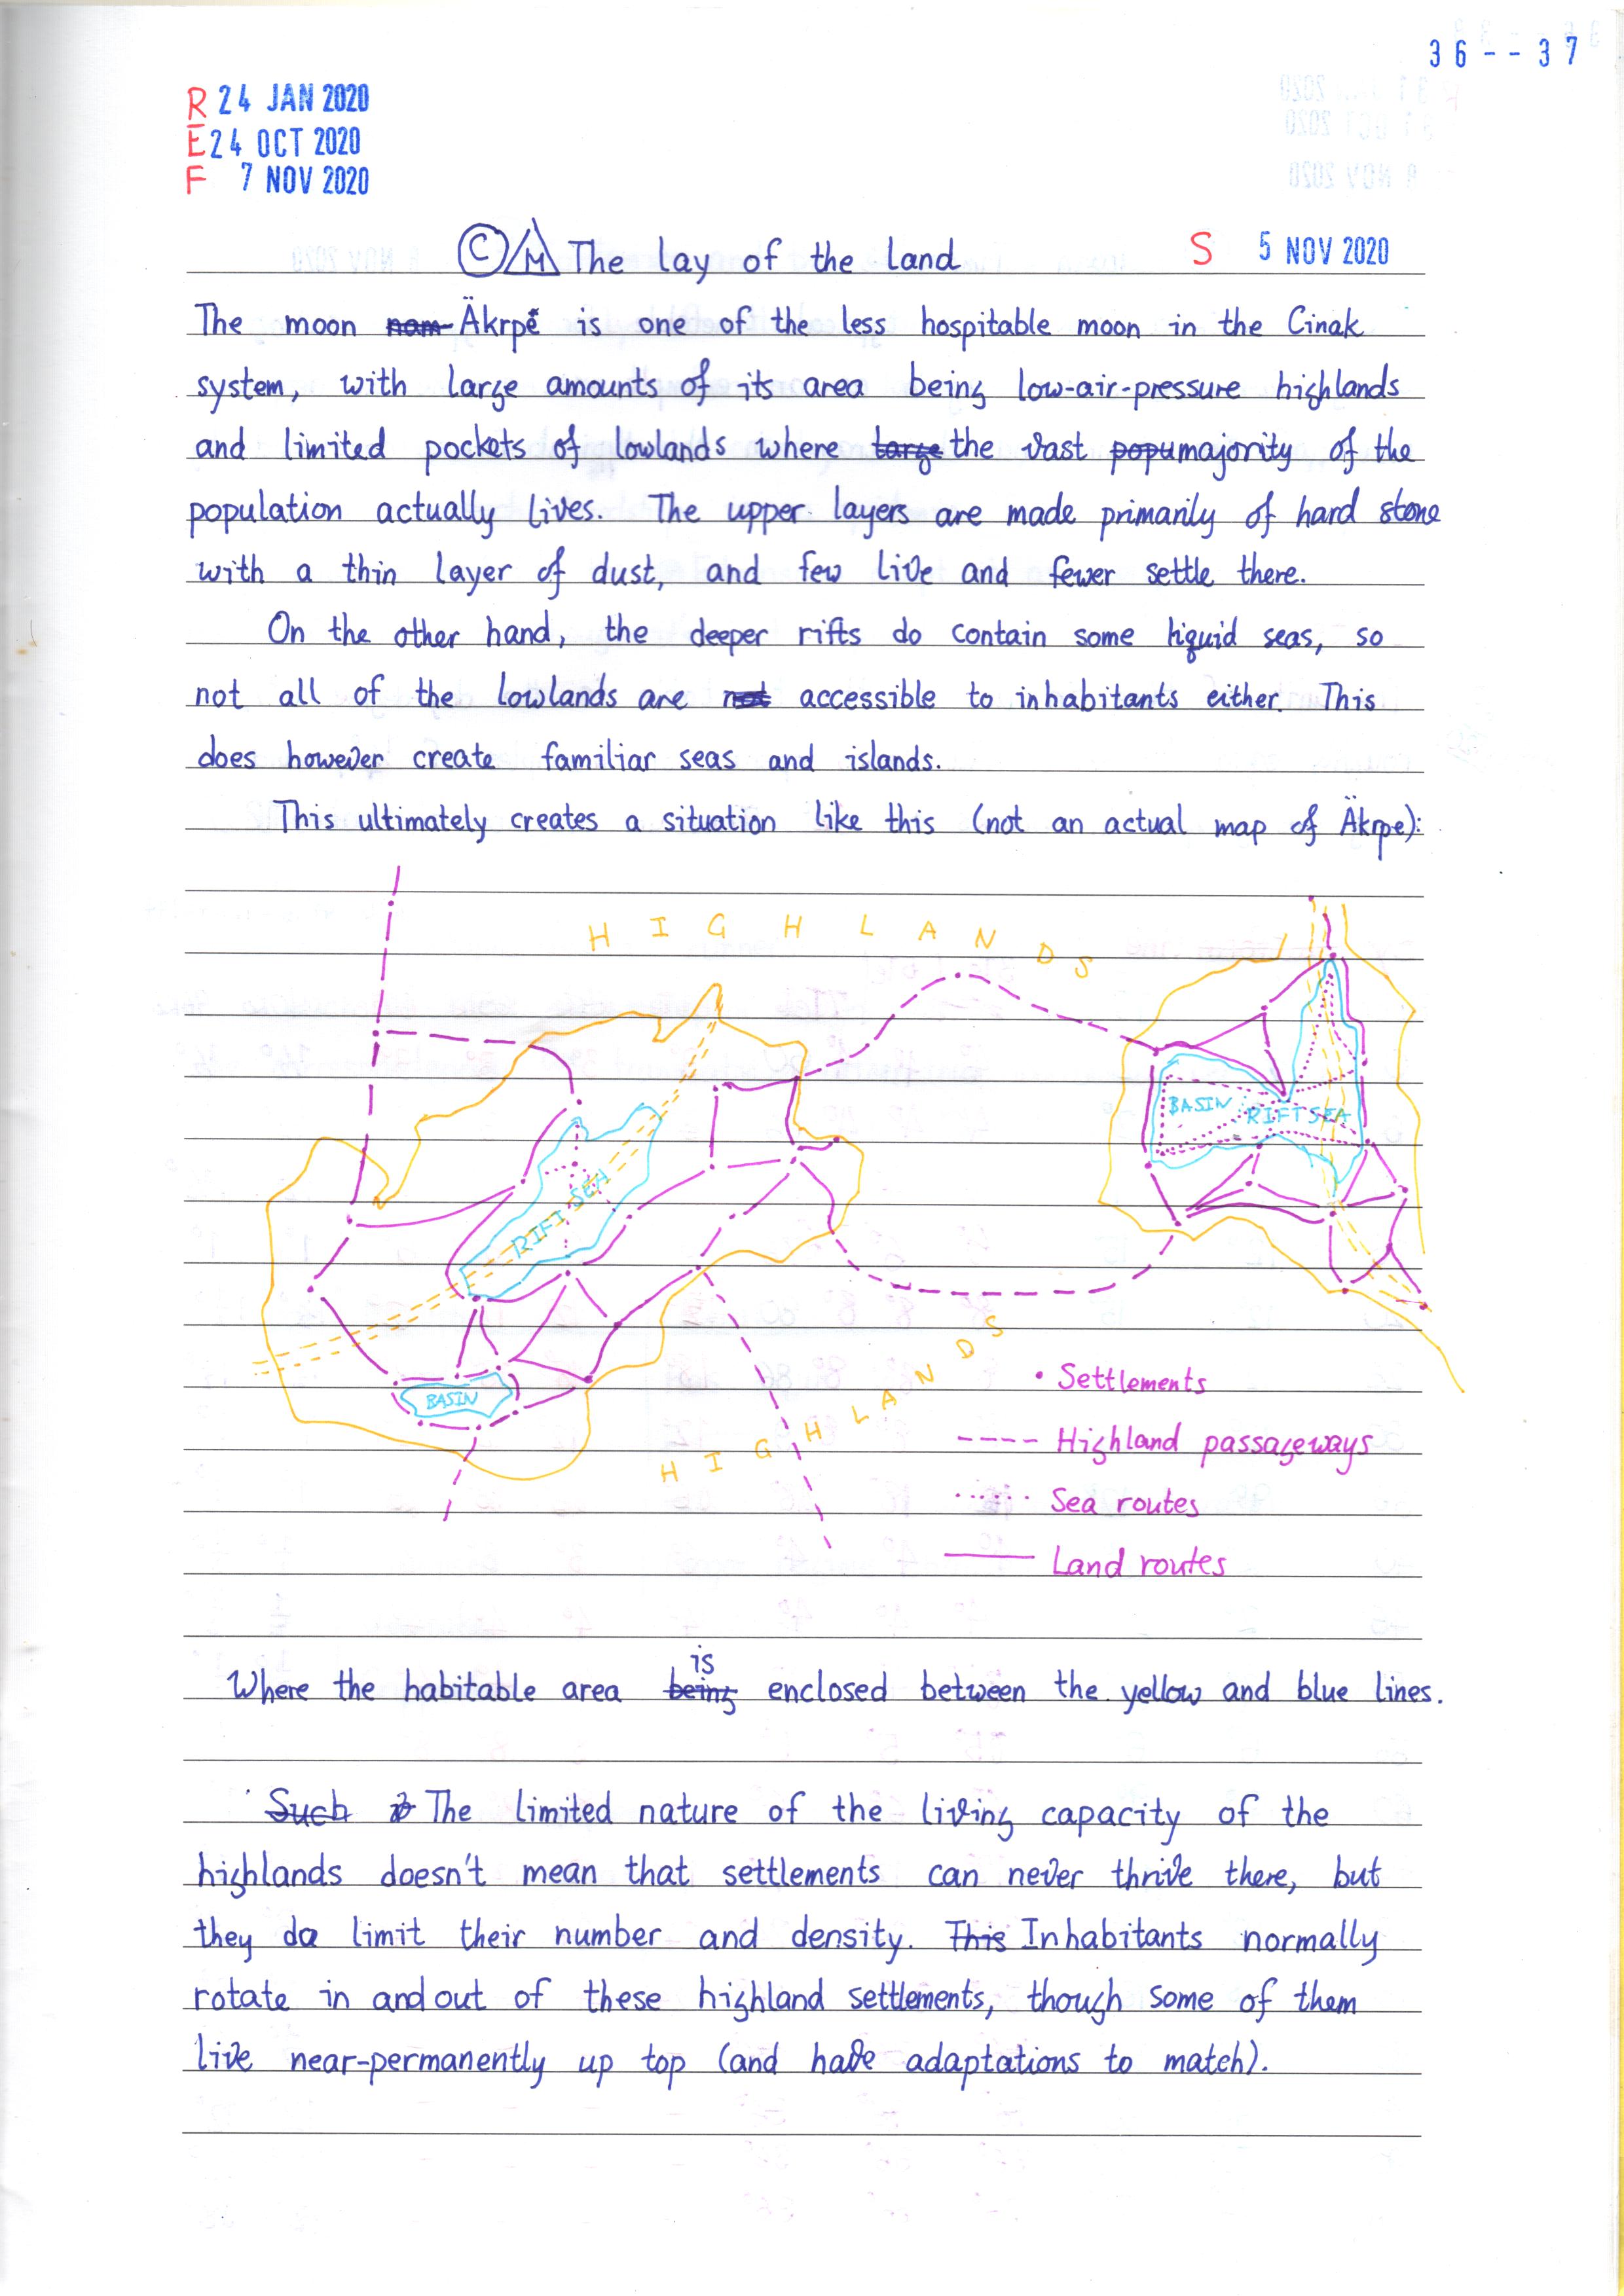 36--37
R 24 JAN 2020
E 24 OCT 2020
F 7 NOV 2020
Ⓒ M The lay of the land S 5 NOV 2020
The moon nam Äkrpe is one of the less hospitable moon in the Cinak
system, with large amounts of its area being low-air-pressure highlands
and limited pockets of lowlands where large the vast popu majority of the
population actually lives. The upper layers are made primarily of hard stone
with a thin layer of dust, and few live and fewer settle there.
On the other hand, the deeper rifts do contain some liquid seas, so
not all of the lowlands are not accessible to inhabitants either. This
does however create familiar seas and islands.
This ultimately creates a situation like this (not an actual map of Äkrpe):
HIGHLANDS
BASIN RIFT SEA
RIFT SEA
BASIN
HIGHLANDS
Settlements
Highland passageways
Sea routes
Land routes
is
Where the habitable area being enclosed between the yellow and blue lines.
Such The limited nature of the living capacity of the
highlands doesn't mean that settlements can never thrive there, but
they do limit their number and density. This Inhabitants normally
rotate in and out of these highland settlements, though some of them
live near-permanently up top (and have adaptations to match).